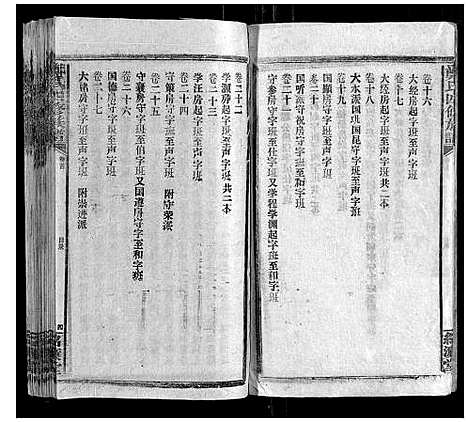 卷十六
大经房起字班至声字班
卷十七
大经房起字班至声字班共二本
卷十八
大水派国琪国昆守字班至声字班
卷十九
国显房守字班至声字班
卷二十
国听派守祝房守字班至和字班
卷二十一
守参房守字班至仕字班又学程学渊起字班至声字班
卷二十二
学渊房起字班至声字班共二本
卷二十三
学汪房起字班至声字班
卷二十四
守策房守字班 附守荣派
卷二十五
守襄房守字班又国遵房守字班至和字班
卷二十六
国德房守字班至声字班
卷二十七
大铭房守字班至声字班 附崇进派
卷首
目录
氏四修族谱